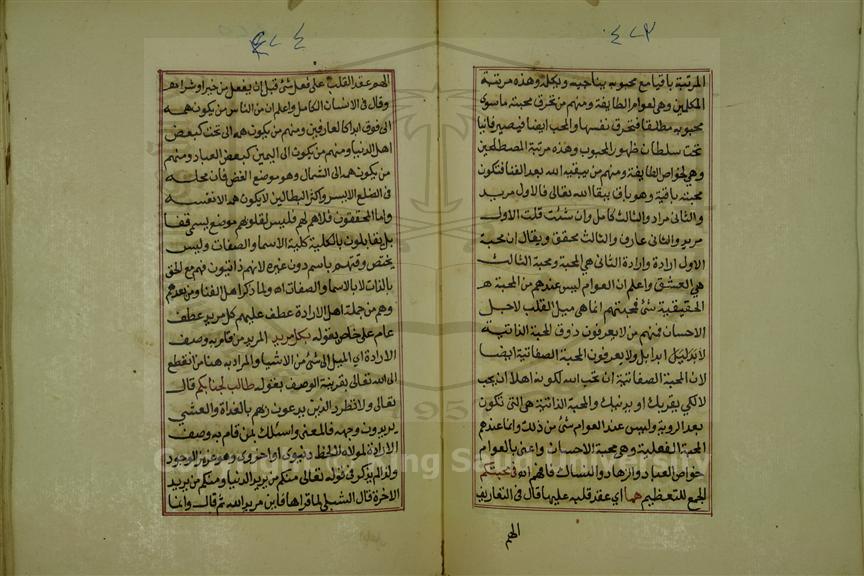 ٤٨٣
المرتبة باقيا مع محبوبه بناحيته وبكله وهذه مرتبة
المكملين وهي لعوام الطايفة ومنهم من تحرق محبته ماسوى
محبوبه مطلقا فتحرق نفسها والمحب ايضا فيصير فانيا
تحت سلطان ظهور المحبوب وهذه مرتبة المصطلمين
وهي لخواص الطايفة ومنهم من يبقيه الله بعد الفنا فتكون
محبته باقية وهو باق ببقا الله تعالى فالاول مريد
والثاني مراد والثالث كامل وان شئت قلت الاول
مريد والثاني عارف والثالث محقق ويقال ان محبة
الاول ارادة وارادة الثاني هي المحبة ومحبة الثالث
هي العشق واعلم ان العوام ليس عندهم من المحبة
الحقيقية شئ فمحبتهم انما هي ميل القلب لاجل
الاحسان فهم من لا يعرفون ذوق المحبة الذاتية
لا بدليل ابدا بل ولا يعرفون المحبة الصفاتية ايضا
لان المحبة الصفاتية ان تحب الله لكونه اهلا ان يحب
لا لكي يقربك او يدنيك والمحبة الذاتية هي التي تكون
بعد الروية وليس عند العوام شئ من ذلك وانما عندهم
المحبة الفعلية وهو محبة الاحسان واعني بالعوام
خواص العباد والزهاد والنساك فافهم اه في محبتكم
الجمع للتعظيم هما اي عقد قلبه عليها قال في التعاريف
الهم
٤٨٤
الهم عقد القلب على فعل شئ قبل ان يفعل من خير او شر اه
وقال في الانسان الكامل واعلم ان من الناس من يكون همه
الى فوق ابدا كالعارفين ومنهم من يكون همه الى تحت كبعض
اهل الدنيا ومنهم من يكون الى اليمين كبعض العباد ومنهم
من يكون همه الى الشمال وهو موضع النفس فان محله
في الضلع الايسر واكثر البطالين لا يكون هم الا نفسه
واما المحققون فلا هم لهم فليس لقلوبهم موضع يسمى قفا
بل يقابلون بالكلية كلية الاسما والصفات وليس
يختص وقتهم باسم دون غيره لانهم ذاتيون فهم مع الحق
بالذات لا بالاسما والصفات اه ولما ذكر اهل الفنا ومن بعدهم
وهم من جملة اهل الارادة عطف عليهم كل مريد عطف
عام على خاص بقوله بكل مريد المريد من قام به وصف
الارادة اي الميل الى شئ من الاشيا والمراد به هنا من انقطع
الى الله تعالى بقرينة الوصف بقوله طالب لجنابكم قال
تعالى ولا تطرد الذين يدعون ربهم بالغداة والعشي
يريدون وجهه فالمعنى واسئلك بمن قام به وصف
الارادة لمولاه لا لحظ دنيوي او اخروي وهو عزيز الوجود
ولذا لم يذكر في قوله تعالى منكم من يريد الدنيا ومنكم من يريد
الاخرة قال الشبلي لما قراها فاين مريد الله ثم قال وانما